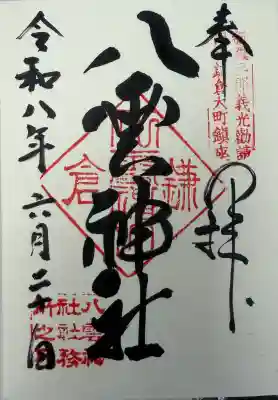 新羅三郎義光勧請
鎌倉大町鎮座
奉拝
八雲神社
鎌倉
令和八年六月二十八日
八雲神
社社務
所之印